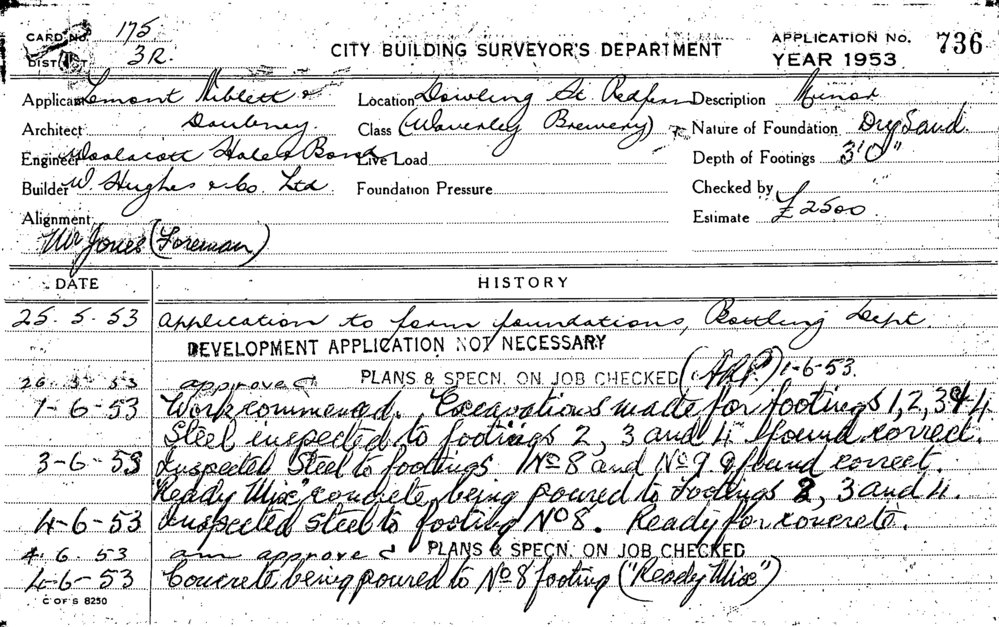 CARD No. 175
DISTRICT 3R.
CITY BUILDING SURVEYOR'S DEPARTMENT
APPLICATION No. 736
YEAR 1953
Applicant Lemont Niblett &
Location Dowling St. Redfern
Description Minor
Architect Daubney.
Class (Waverley Brewery)
Nature of Foundation Dry Sand.
Engineer Woolacott Hale & Bond
Live Load
Depth of Footings 3'0"
Builder W. Hughes & Co. Ltd
Foundation Pressure
Checked by
Alignment
Estimate £2500.
Mr Jones (Foreman)
DATE HISTORY
25.5.53 Application to form foundations, Bottling Dept.
DEVELOPMENT APPLICATION NOT NECESSARY
26.5.53 approved PLANS & SPECN. ON JOB CHECKED 1-6-53.
1-6-53 Work commenced. Excavations made for footings 1, 2, 3 & 4
Steel inspected to footings 2, 3 and 4 & found correct.
3-6-53 Inspected Steel to footings No 8 and No 9 & found correct.
"Ready Mix" concrete being poured to Footings 2, 3 and 4.
4-6-53 Inspected steel to footing No 8. Ready for concrete.
4.6.53 am approved PLANS & SPECN. ON JOB CHECKED
4-6-53 Concrete being poured to No 8 footing ("Ready Mix")
C OF S 8250